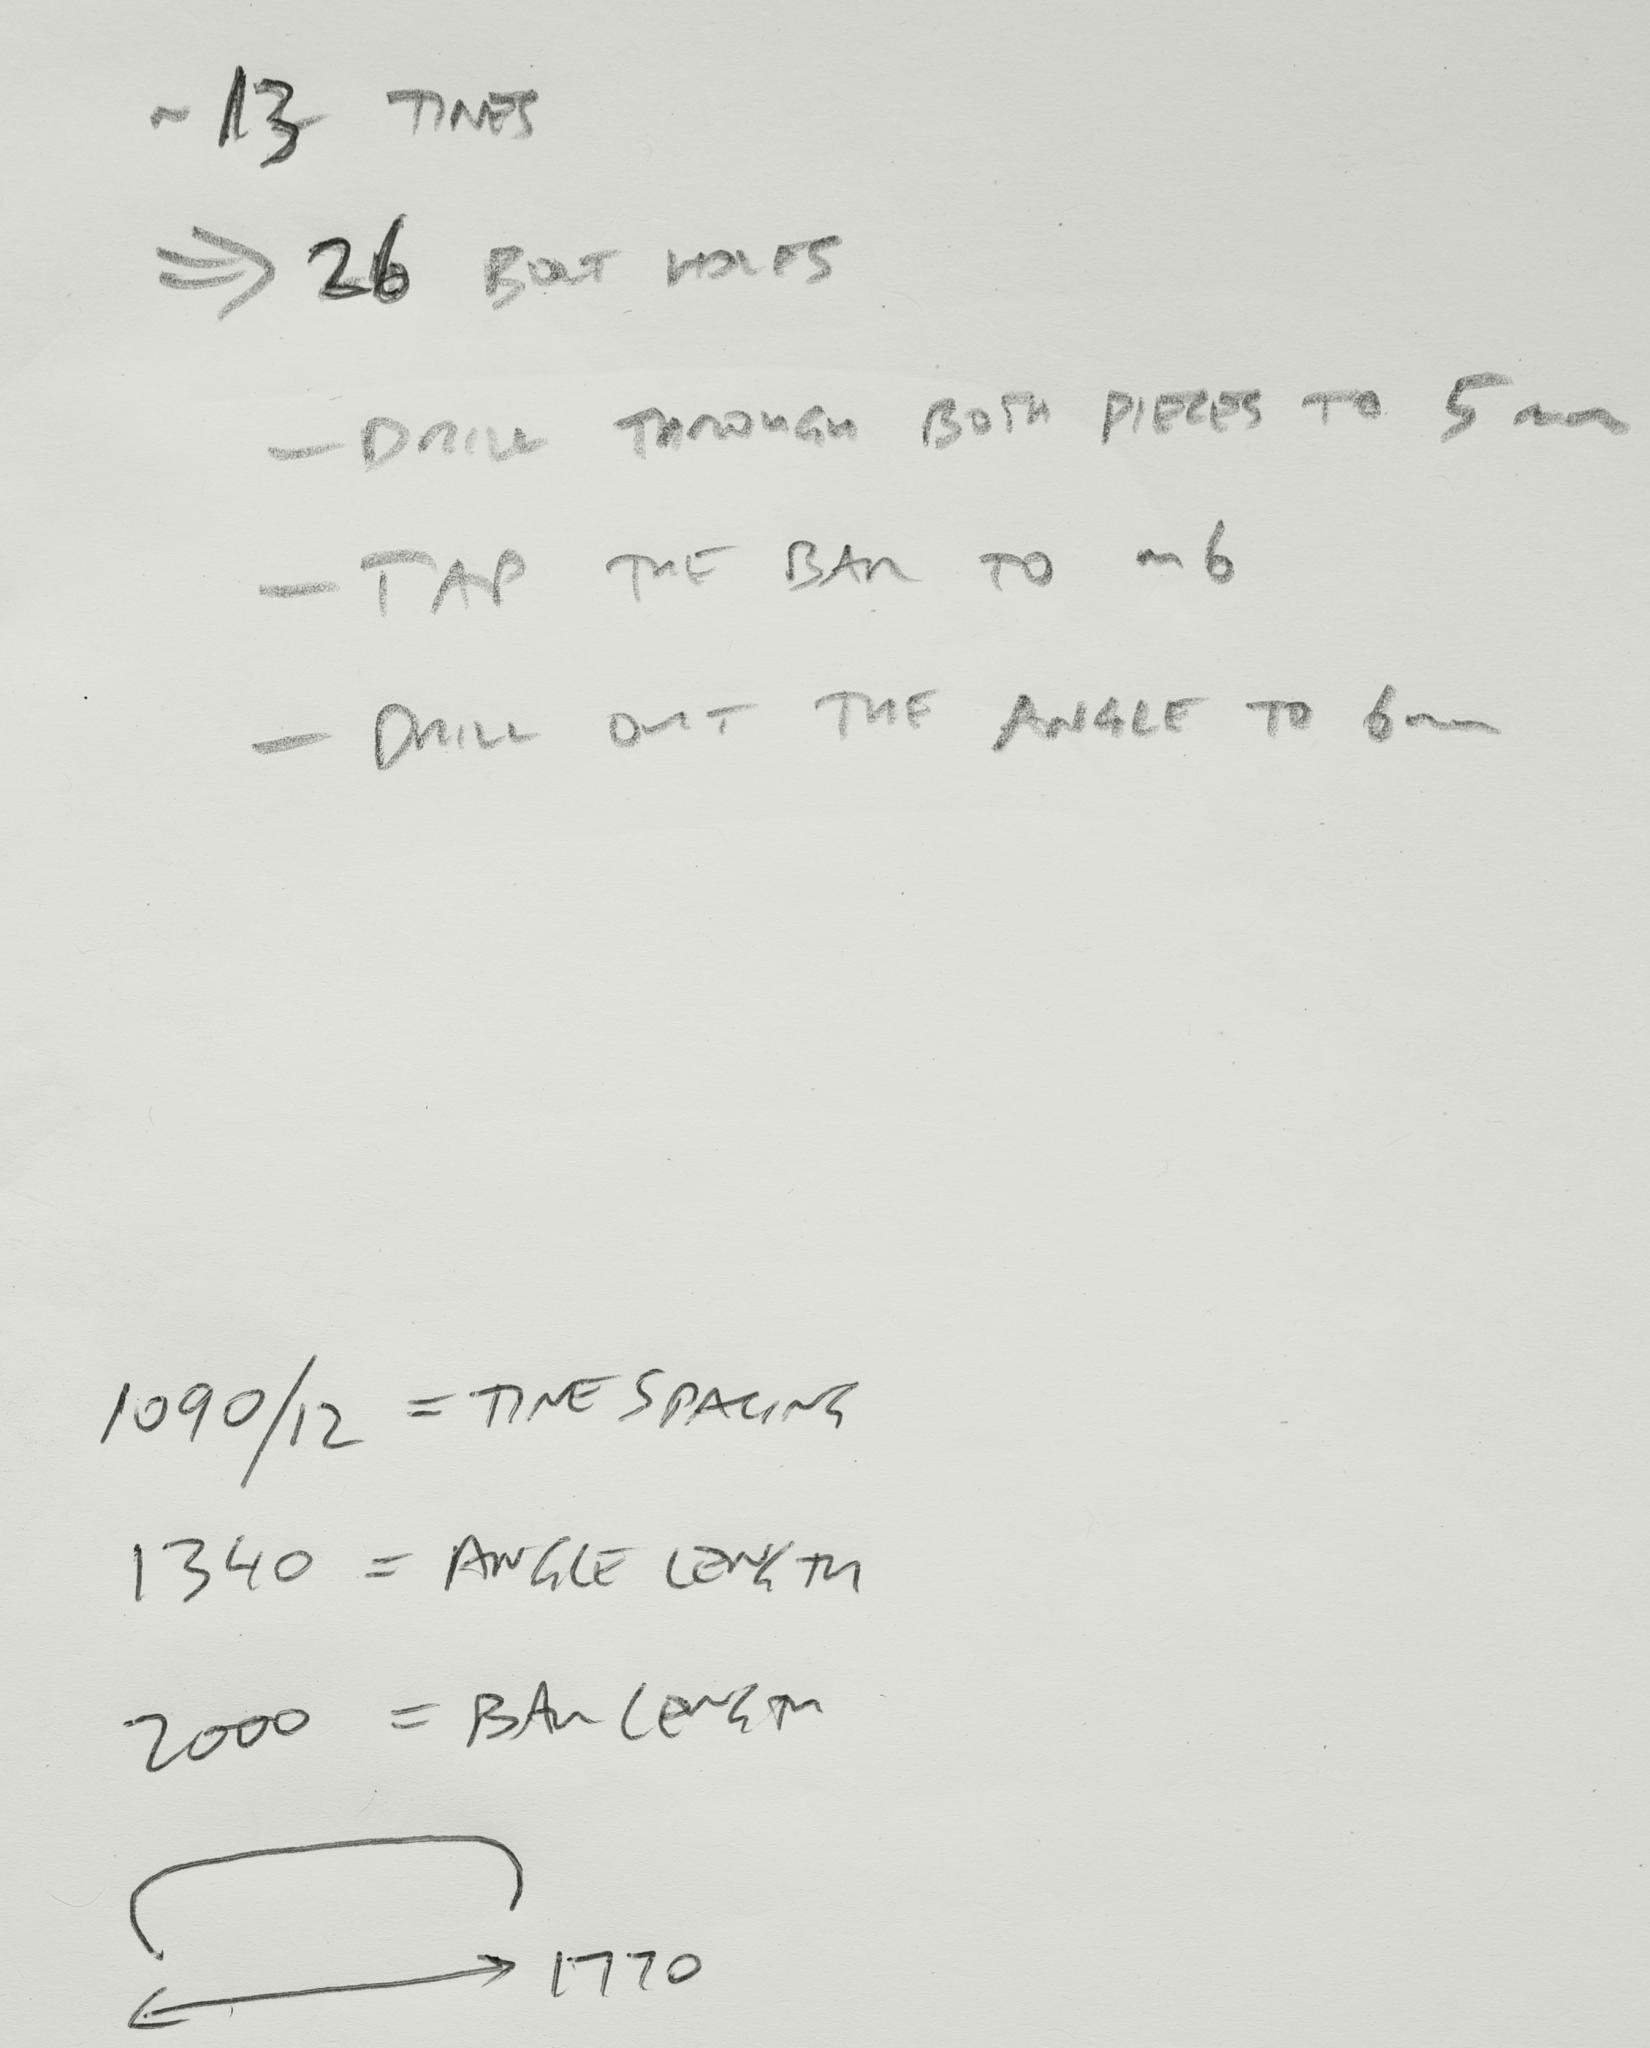 ~ 13 TINES
⇒ 26 BOLT HOLES
- DRILL THROUGH BOTH PIECES TO 5mm
- TAP THE BAR TO m6
- DRILL OUT THE ANGLE TO 6mm
1090/12 = TINE SPACING
1340 = ANGLE LENGTH
2000 = BAR LENGTH
1770